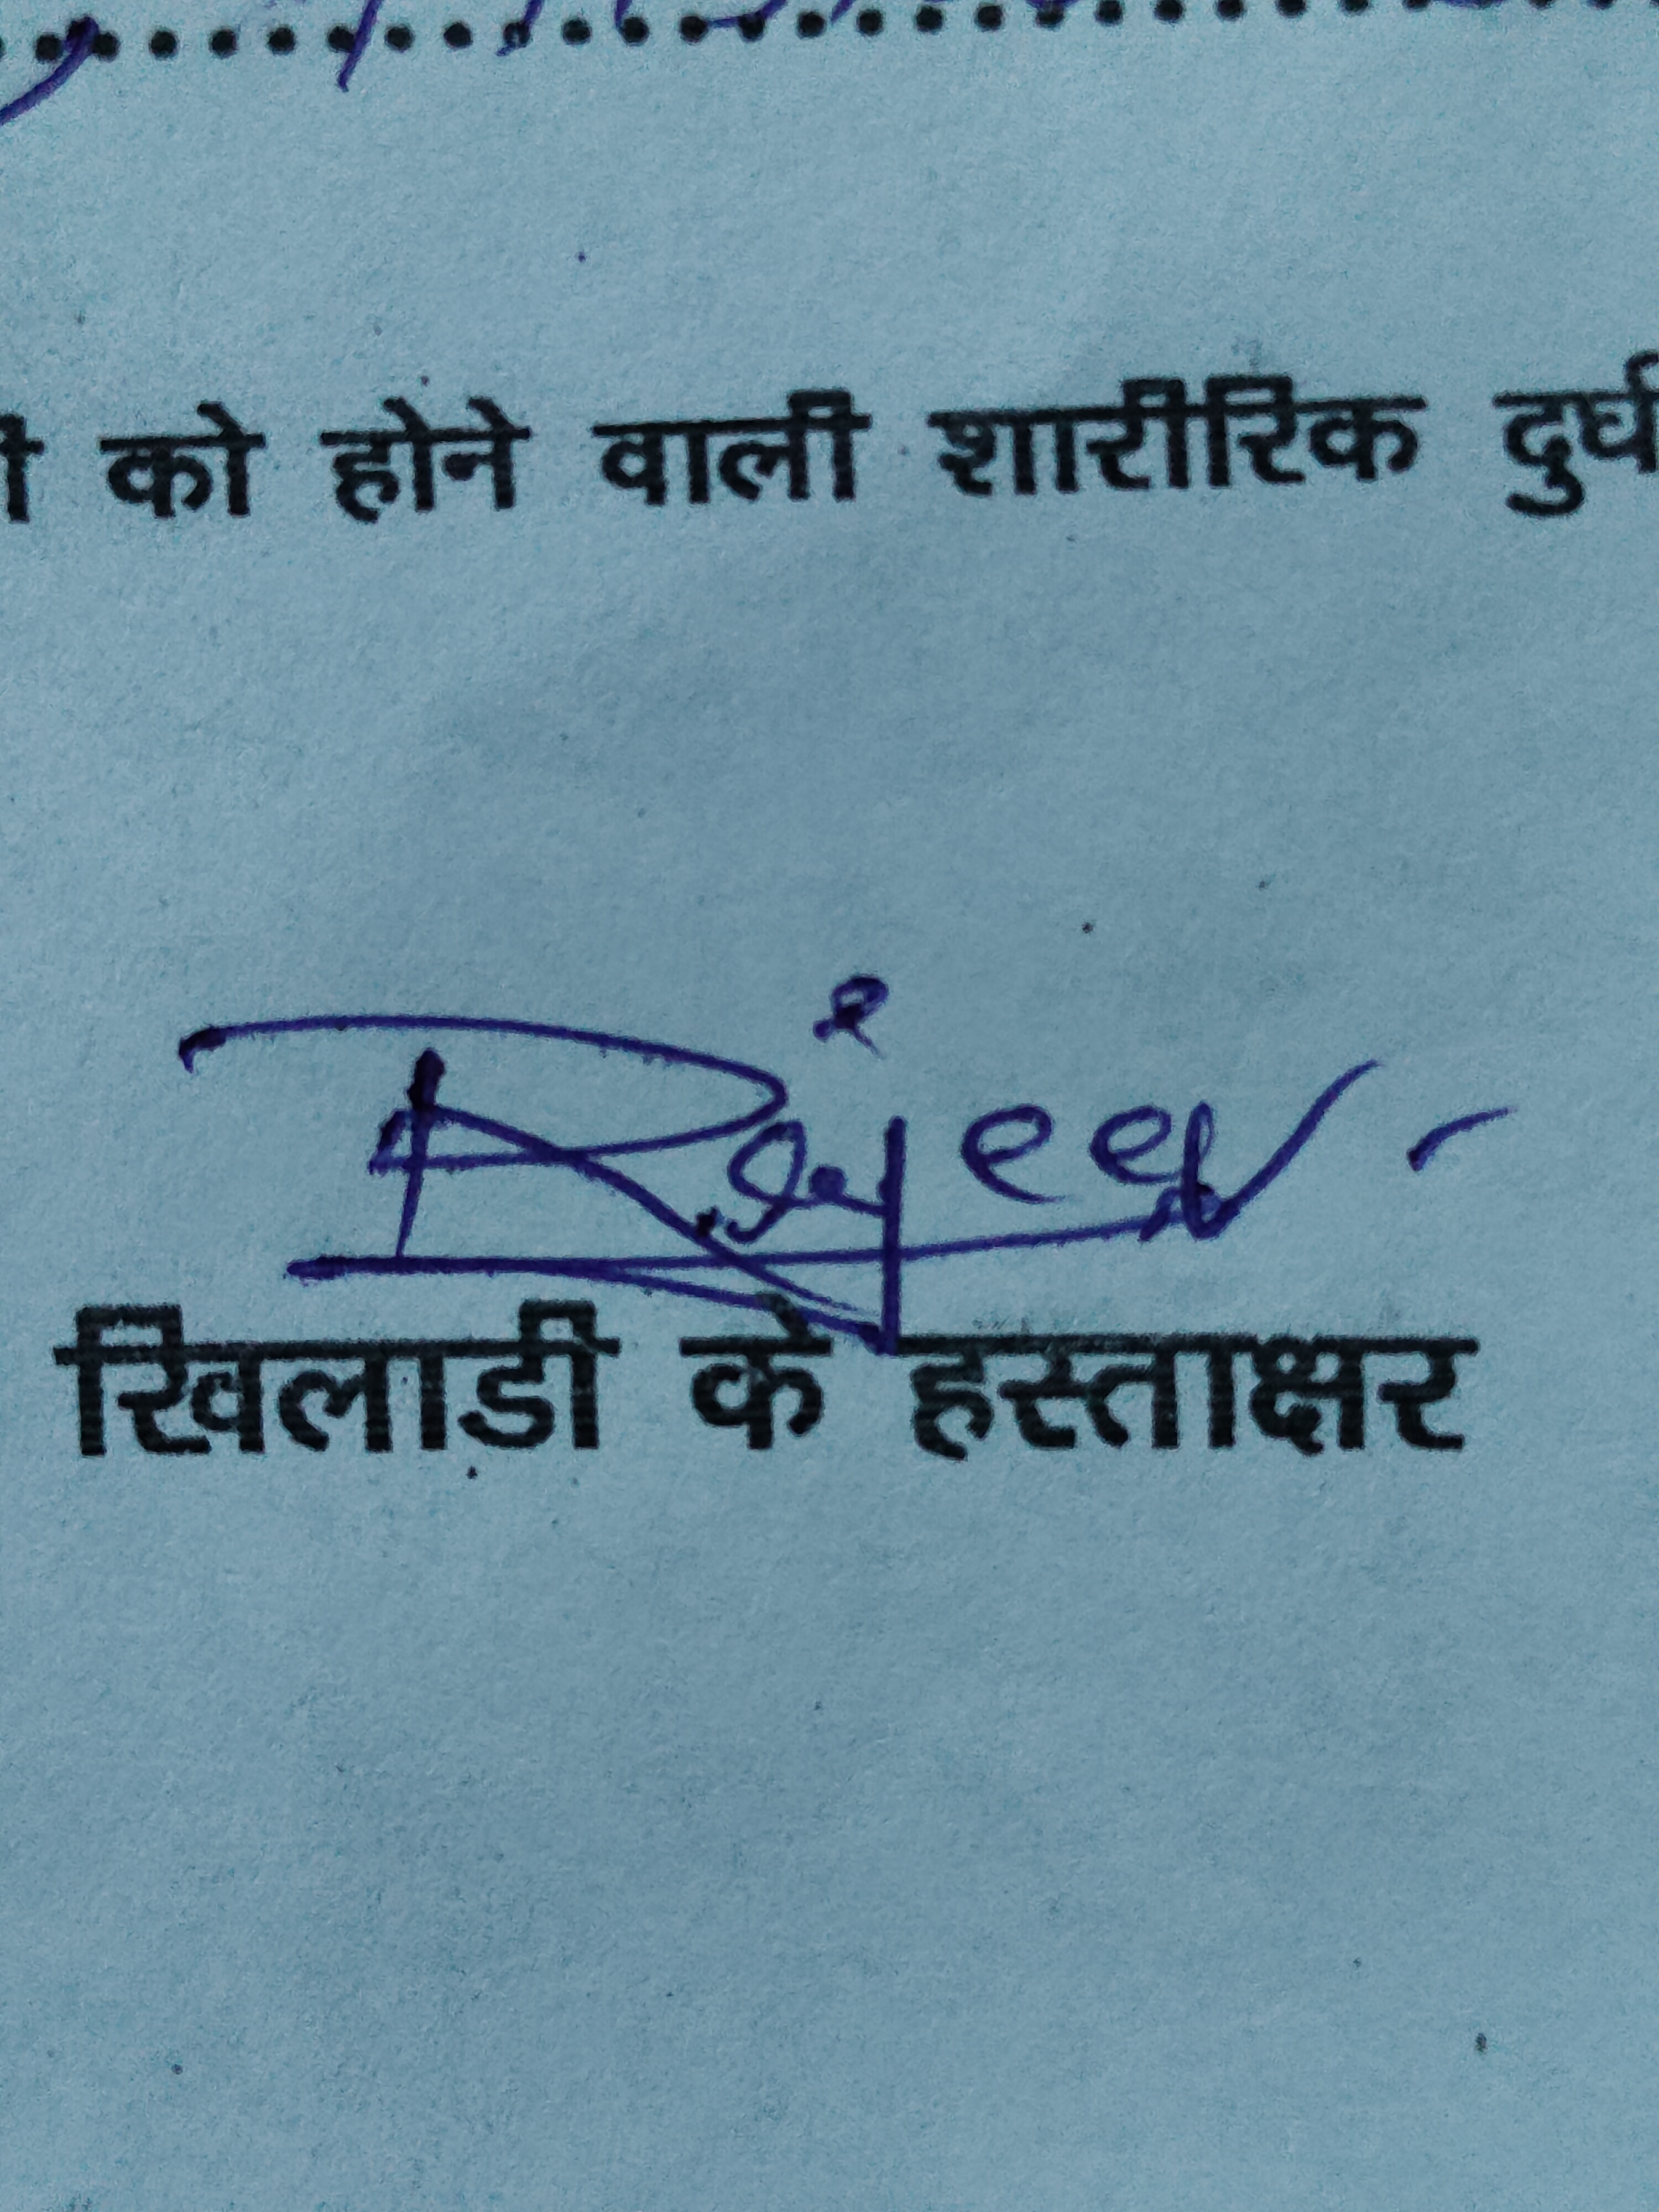 को होने वाली शारीरिक दुर्घ
Rajeev
खिलाडी के हस्ताक्षर